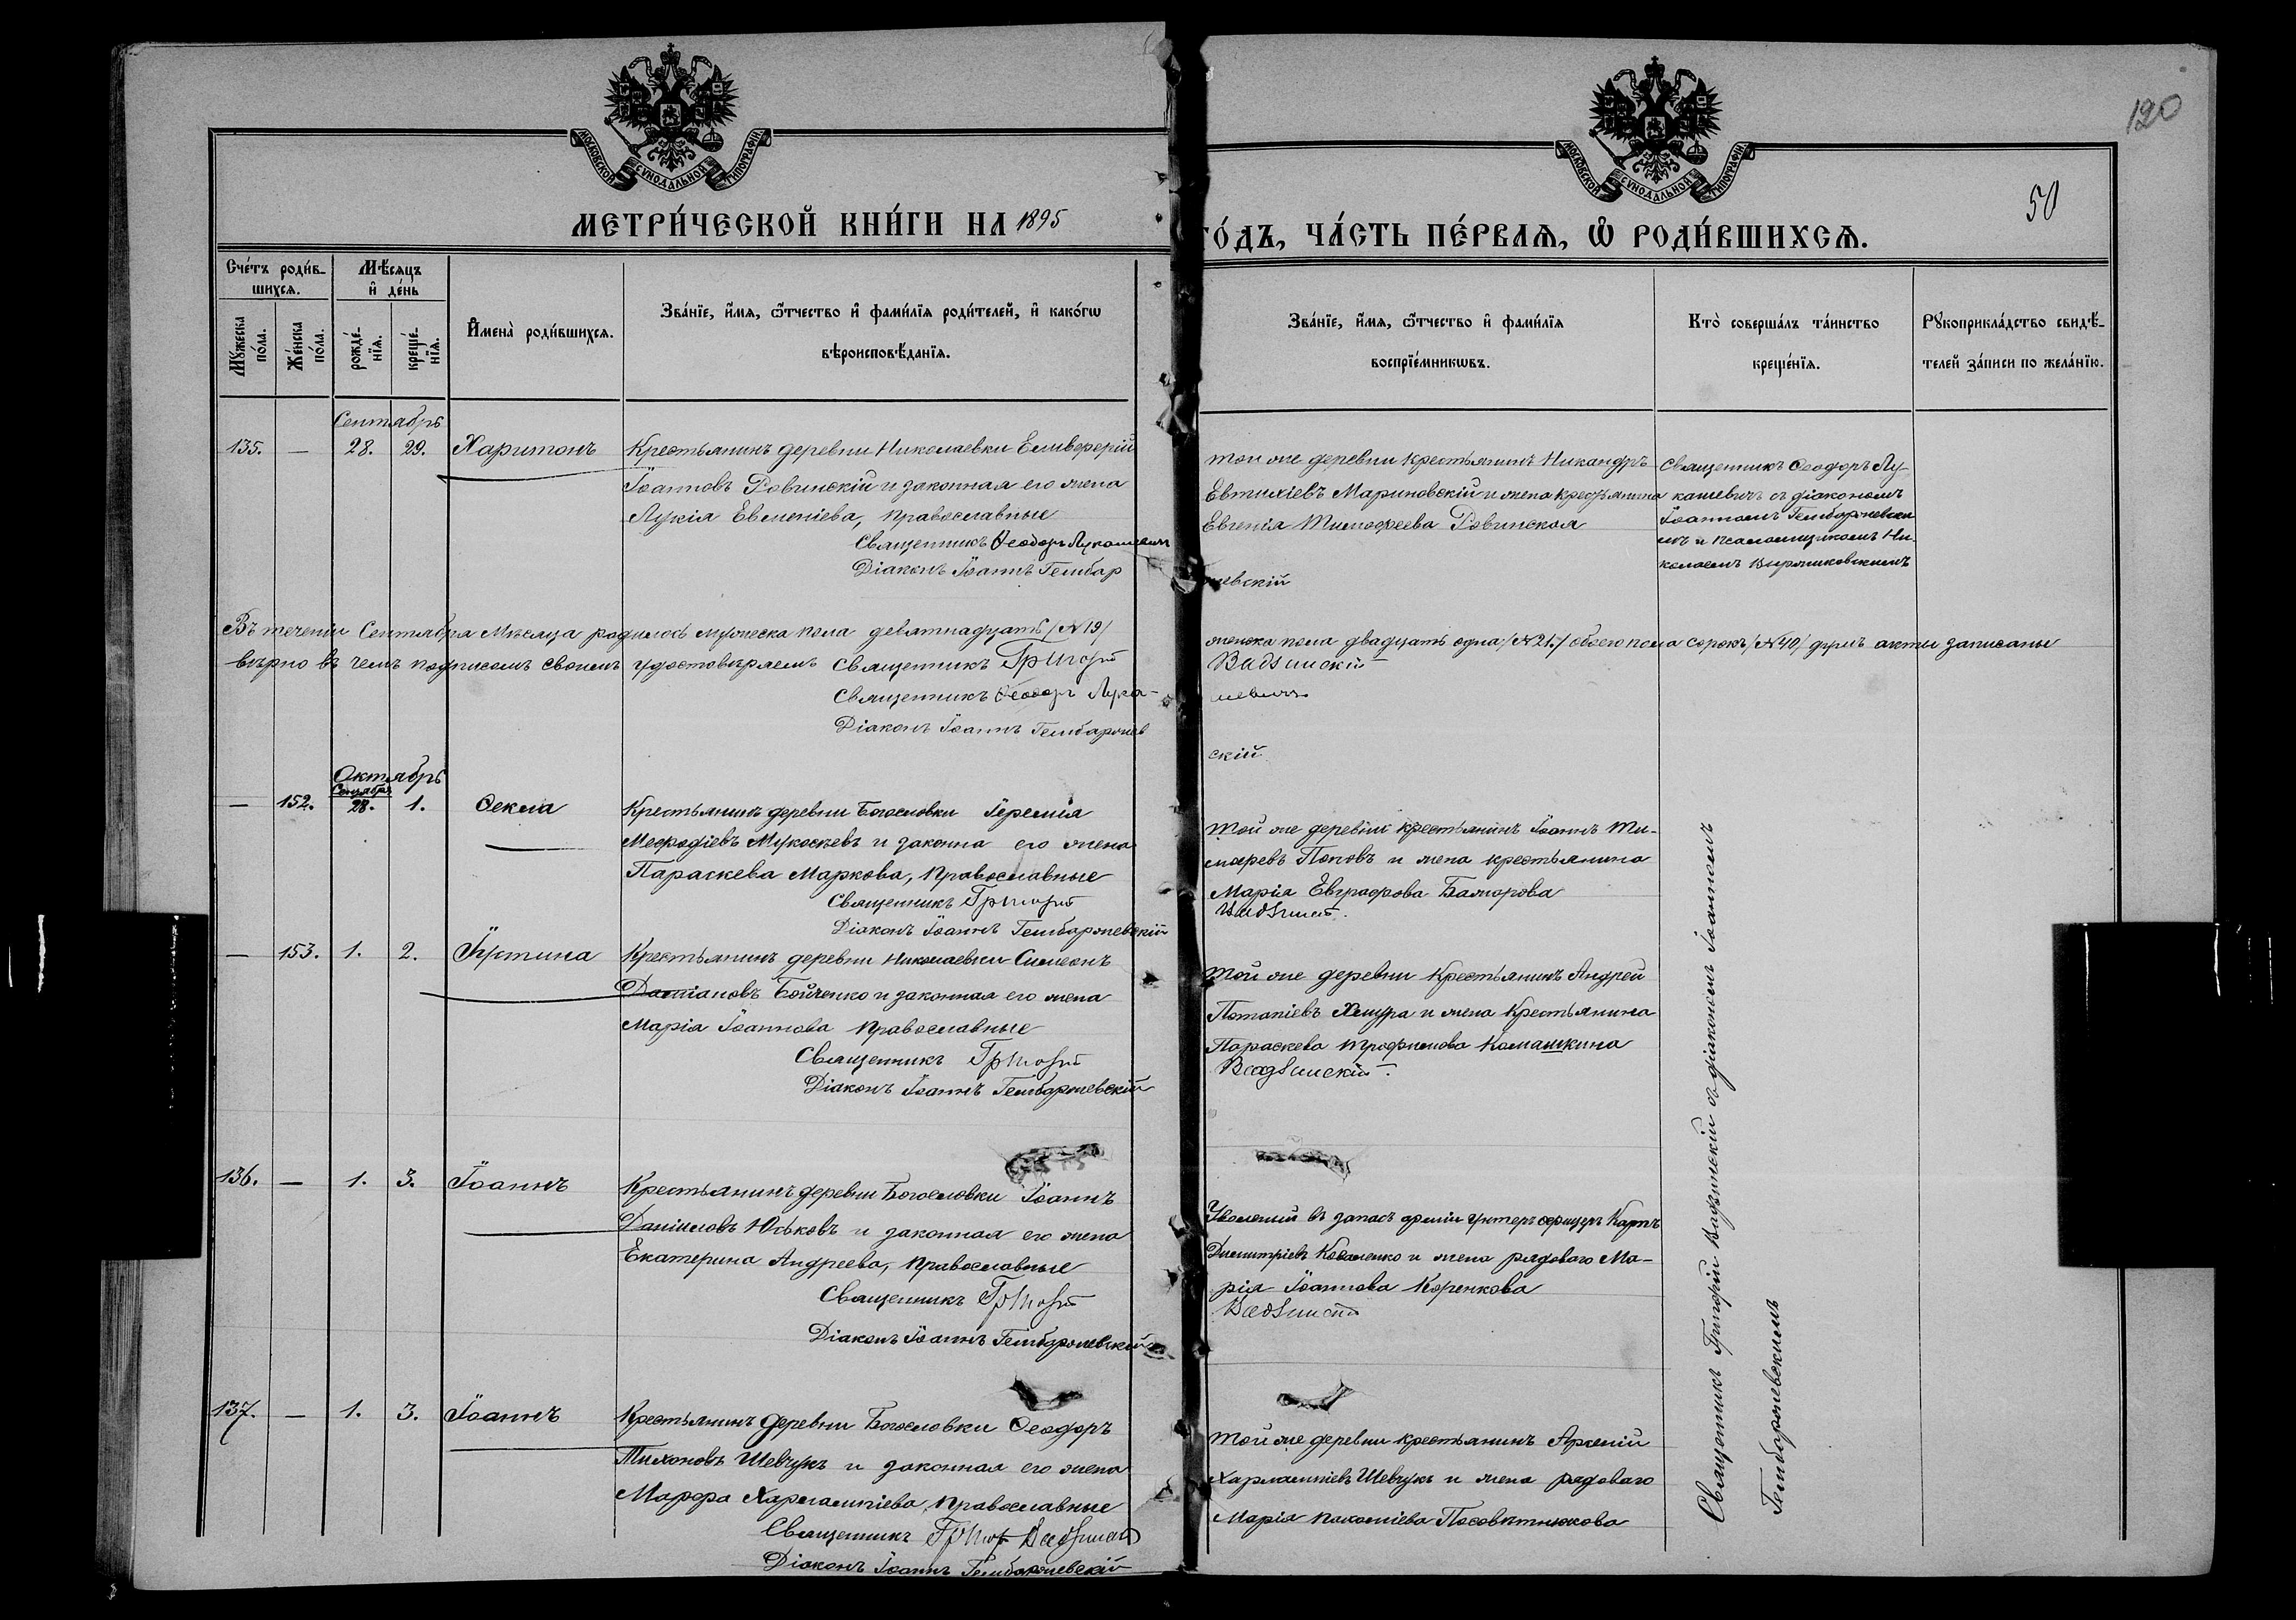 120
50
МОСКОВСКОЙ СѴНОДАЛЬНОЙ ТИПОГРАФІИ
МОСКОВСКОЙ СѴНОДАЛЬНОЙ ТИПОГРАФІИ
МЕТРИ́ЧЕСКОЙ КНИ́ГИ НА 1895
ГО́ДЪ, ЧА́СТЬ ПЕ́РВАѦ, Ѽ РОДИ́ВШИХСѦ.
Сче́тъ роди́в-
шихсѧ.
Мѣ́сяцъ
и҆ де́нь
Мꙋ́жеска по́ла.
Же́нска по́ла.
рожде́-
нїѧ.
креще́-
нїѧ.
И҆мена̀ роди́вшихсѧ.
Зва́нїе, и҆́мѧ, ѻ҆́тчество и҆ фами́лїѧ роди́телей, и҆ како́гѡ
вѣроисповѣ́данїѧ.
Зва́нїе, и҆́мѧ, ѻ҆́тчество и҆ фами́лїѧ
воспрїе́мникѡвъ.
Кто̀ соверша́лъ та́инство
креще́нїѧ.
Рꙋкоприкла́дство свидѣ́-
телей за́писи по жела́нїю.
Сентябрь
135. — 28. 29. Харитонъ
Крестьянинъ деревни Николаевки Елиѳерій
Іоанновъ Ровинскій и законная его жена
Лукія Евменіева, православные
Священникъ Ѳеодоръ Лукашевич
Діаконъ Іоаннъ Гембар
жевскій
той же деревни крестьянинъ Никандръ
Евтихіевъ Мариновскій и жена крестьянина
Евгенія Тимоѳеева Ровинская
Священникъ Ѳеодоръ Лу-
кашевичъ съ діакономъ
Іоанномъ Гембаржевски
мъ и псаломщикомъ Ни-
колаемъ
Въ теченіи Сентября мѣсяца родилось мужеска пола девятнадцать /№19/ женска пола двадцать одна /№21./ обоего пола сорокъ /№40/ душъ акты записаны
вѣрно въ чемъ подписомъ своимъ удостовѣряемъ Священникъ Григорій Вадзинскій
Священникъ Ѳеодоръ Лука-
шевичъ
Діаконъ Іоаннъ Гембаржев
скій
Октябрь
Сентябрь
— 152. 28. 1. Ѳекла
Крестьянинъ деревни Богословки Іеремія
Меѳодіевъ Мукосѣевъ и законна его жена
Параскева Маркова, православные
Священникъ Григорій
Діаконъ Іоаннъ Гембаржевскій
той же деревни крестьянинъ Іоаннъ Ти-
моѳеевъ Поповъ и жена крестьянина
Марія Евграфова
— 153. 1. 2. Іустина
Крестьянинъ деревни Николаевки Симеонъ
Даміановъ Бойченко и законная его жена
Марія Іоаннова православные
Священникъ Григорій
Діаконъ Іоаннъ Гембаржевскій
той же деревни крестьянинъ Андрей
Потапіевъ Хмура и жена крестьянина
Параскева Трофимова Камашкина
Вадзинскій.
136. — 1. 3. Іоаннъ
Крестьянинъ деревни Богословки Іоаннъ
Даніиловъ Юськовъ и законная его жена
Екатерина Андреева, православные
Священникъ Григорій
Діаконъ Іоаннъ Гембаржевскій
Уволеный въ запасъ арміи унтеръ офицеръ Карпъ
Димитріевъ Коваленко и жена рядоваго Ма-
рія Іоаннова Коренкова
Вадзинскій
137. — 1. 3. Іоаннъ
Крестьянинъ деревни Богословки Ѳеодоръ
Тихоновъ Шевчукъ и законная его жена
Марѳа Харлампіева, православные
Священникъ Григ Вадзинскій
Діаконъ Іоаннъ Гембаржевскій
той же деревни крестьянинъ Арсеній
Харлампіевъ Шевчукъ и жена рядоваго
Марія
Священникъ Григорій Вадзинскій съ діакономъ Іоанномъ
Гембаржевскимъ